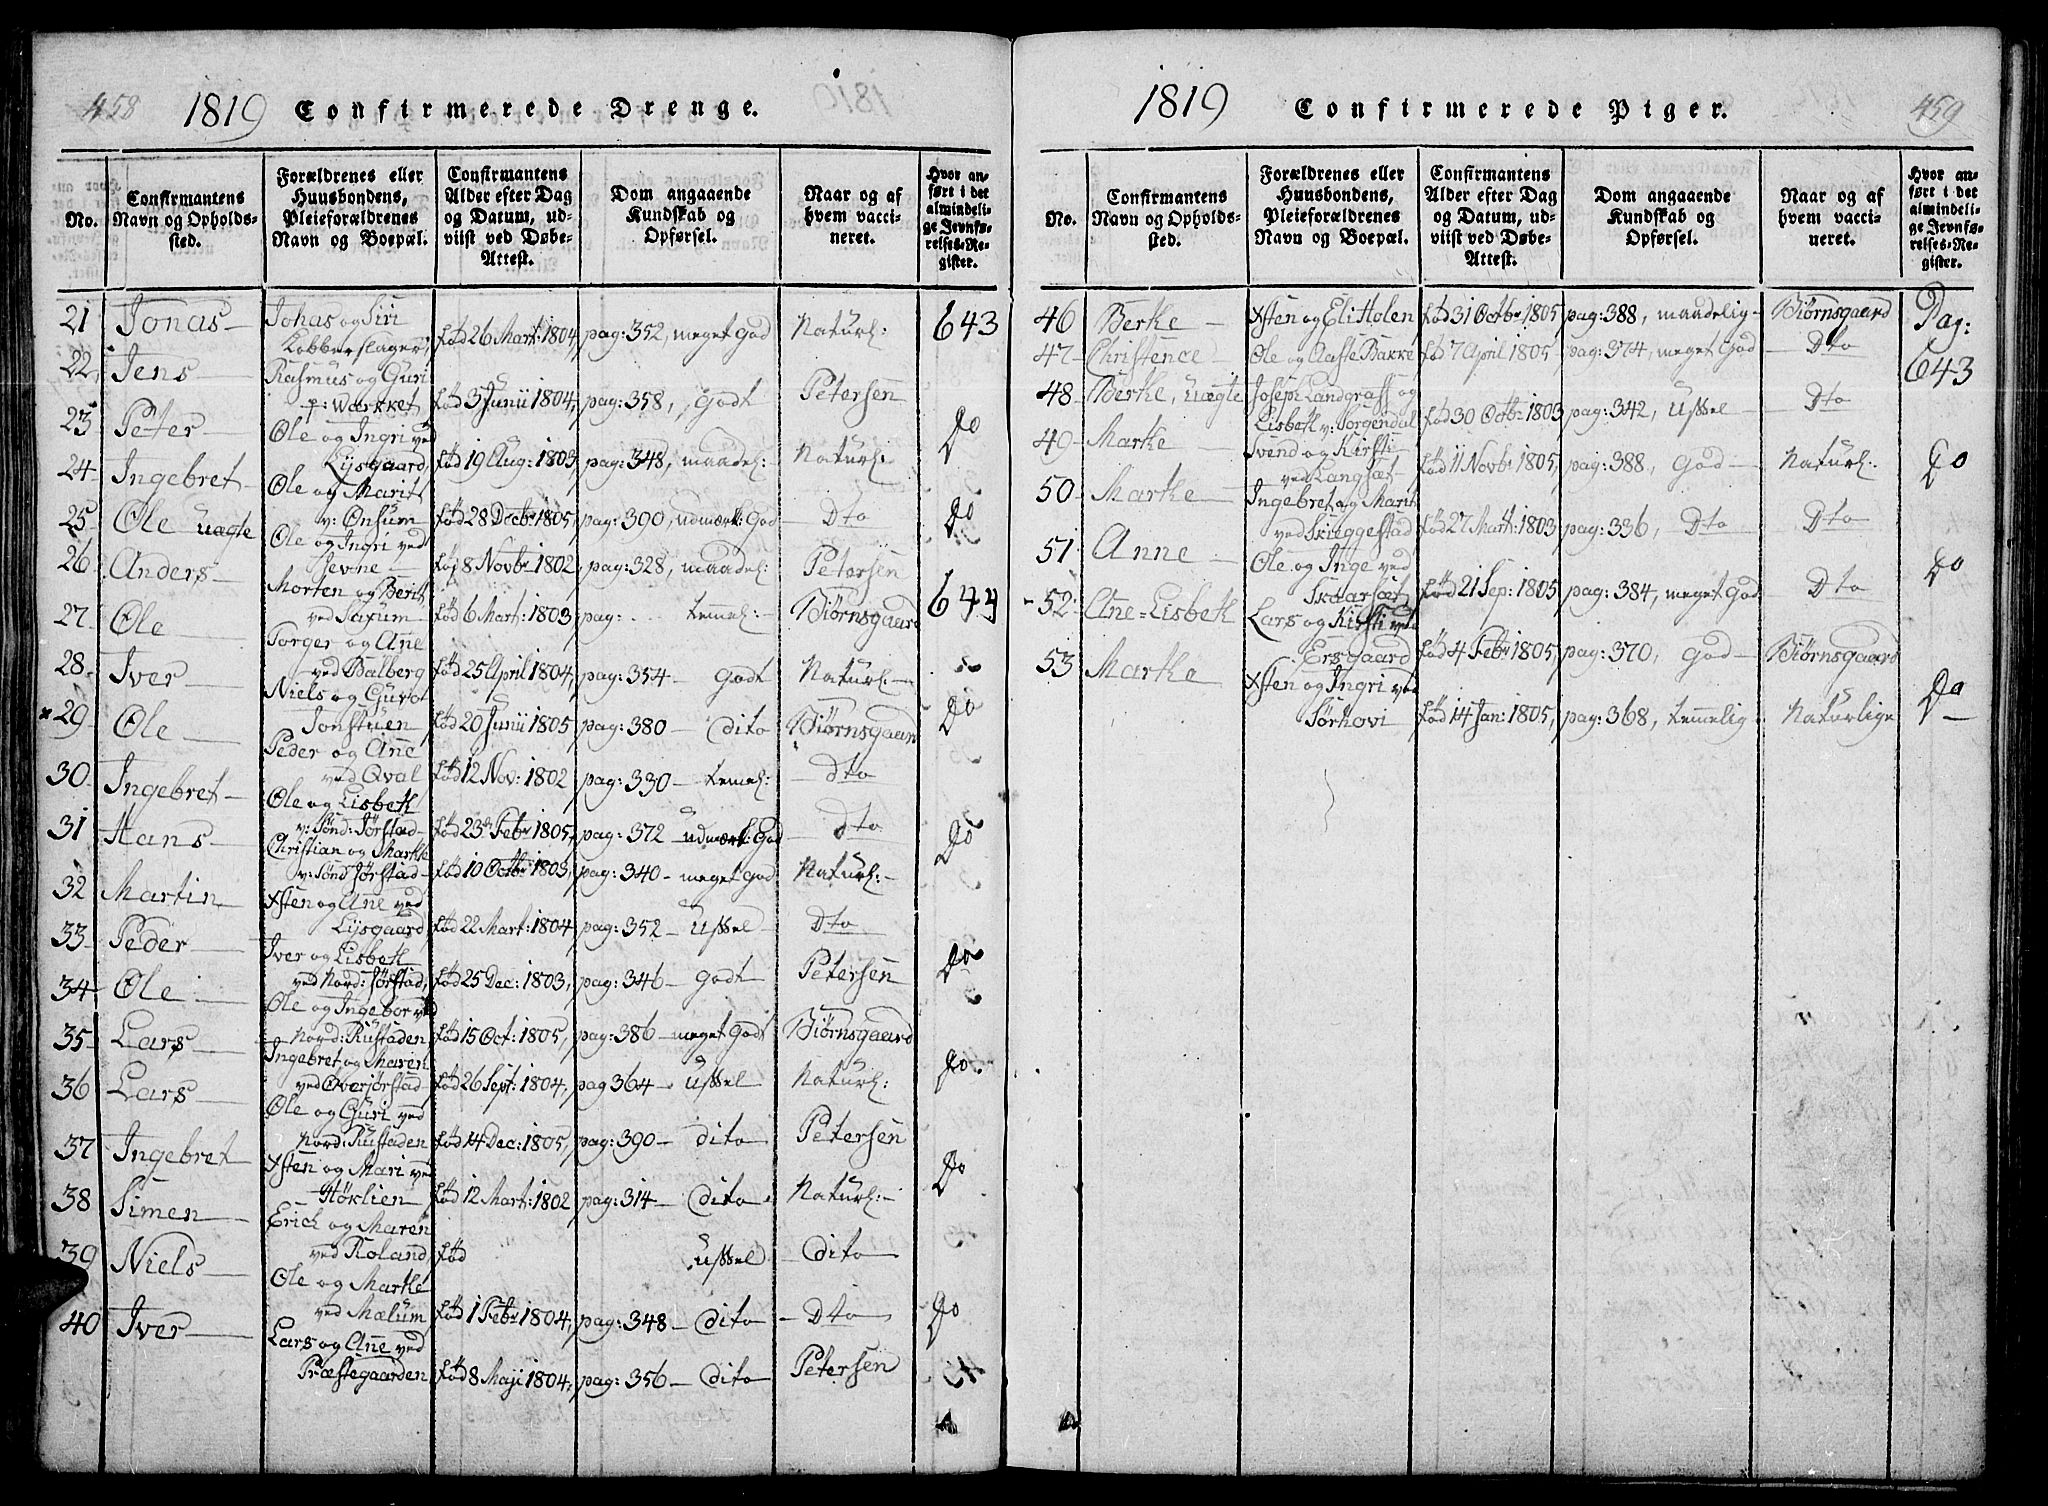 458
1819 Confirmerede Drenge.
No.
Confirmantens Navn og Opholdssted.
Forældrenes eller Huusbondens, Pleieforældrenes Navn og Boepæl.
Confirmantens Alder efter Dag og Datum, udviist ved Døbe-Attest.
Dom angaaende Kundskab og Opførsel.
Naar og af hvem vaccineret.
Hvor anført i det almindelige Jevnførelses-Register.
21 Jonas Johas og Siri
Kobberslager, fød 26 Mart: 1804, pag: 352, meget God Naturl: 643
22 Jens Rasmus og Guri
p: Wærket, fød 3 Junii 1804, pag: 358, Godt Petersen
23 Peter Ole og Ingri ved
Lysgaard, fød 19 Aug: 1803, pag: 348, maadel: Naturl: Do
24 Ingebret Ole og Marit
v: Onsum fød 28 Decbr 1805, pag: 390, udmærk: God Dto Do
25 Ole uægte Ole og Ingri ved
Jevne fød 8 Novbr 1802, pag: 328, maadel: Petersen
26 Anders Morten og Berit
ved Saxum fød 6 Mart: 1803 pag: temel: Biørnsgaard 644
27 Ole Torger og Ane
ved Balberg fød 25 April 1804, pag: 354 Godt Naturl:
28 Iver Niels og Guro
Jonstuen fød 20 Junii 1805 pag: 380 dito Biørnsgaard Do
29 Ole Peder og Ane
ved Qval fød 12 Nov: 1802 pag: 330 temel: Dto
30 Ingebret Ole og Lisbeth
v: Sønd: Jørstad fød 23 Febr 1805, pag: 372 udmærk: God Dto Do
31 Hans Christian og Marthe
v: Sønd Jørstad fød 10 Octbr 1803, pag: 340 meget God Naturl:
32 Martin Xsten og Ane ved
Lysgaard fød 22 Mart: 1804 pag: 352 Ussel Dto
33 Peder Iver og Lisbeth
ved Nord: Jørstad, fød 25 Dec: 1803, pag: 346 Godt Petersen Do
34 Ole Ole og Ingebor ved
Nord: Rustaden fød 15 Oct: 1805, pag: 386 meget Godt Biørnsgaard
35 Lars Ingebret og Maren
ved Oversørstad fød 26 Sept: 1804, pag 364 Ussel Naturl: Do
36 Lars Ole og Guri ved
Nord: Rustaden fød 14 Dec: 1805, pag: 390 dito Petersen
37 Ingebret Xsten og Mari ved
Høklien fød 12 Mart: 1802 pag: 314 dito Naturl: Do
38 Simen Erich og Maren
ved Roland fød Ussel dito
39 Niels Ole og Marthe
ved Mælum fød 1 Febr 1804, pag: 348 dito Dto Do
40 Iver Lars og Ane ved
Præstegaarden fød 8 Maji 1804, pag: 356 dito Petersen
459
1819 Confirmerede Piger.
No.
Confirmantens Navn og Opholdssted.
Forældrenes eller Huusbondens, Pleieforældrenes Navn og Boepæl.
Confirmantens Alder efter Dag og Datum, udviist ved Døbe-Attest.
Dom angaaende Kundskab og Opførsel.
Naar og af hvem vaccineret.
Hvor anført i det almindelige Jevnførelses-Register.
46 Berthe Xsten og Eli Holen fød 31 Octbr 1805 pag: 388, maadelig Biørnsgaard Pag:
47 Christence Ole og Aaste Bakke fød 7 April 1805 pag: 374, meget God Dto 643
48 Berthe, uægte Joseph Landgraff og
Lisbeth v: Sorgendal fød 30 Octbr 1803 pag: 342, Ussel Dto
49 Marthe Svend og Kirsti
ved Langsæt fød 11 Novbr 1805, pag: 388, God Naturl: Do
50 Marthe Ingebret og Marit
ved Skieggestad fød 27 Mart: 1803 pag: 336, Dto Dto
51 Anne Ole og Inge ved
Skaarsæt fød 21 Sep: 1805 pag: 384, meget God Dto Do
52 Ane Lisbeth Lars og Kirsti ved
Ersgaard fød 4 Febr 1805, pag: 370, God Biørnsgaard
53 Marthe Xsten og Ingri ved
Sørhovi fød 14 Jan: 1805, pag: 368, temmelig Naturlige Do